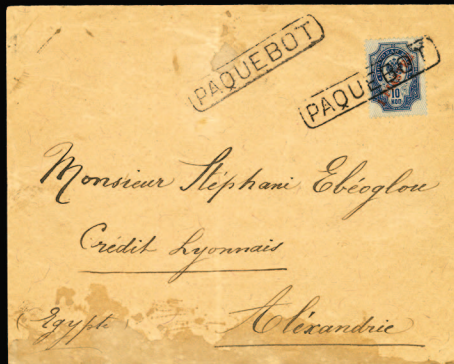 PAQUEBOT
PAQUEBOT
10
КОП
Monsieur Stéphani Ebéoglou
Crédit Lyonnais
Aléxandrie
(Egypte)